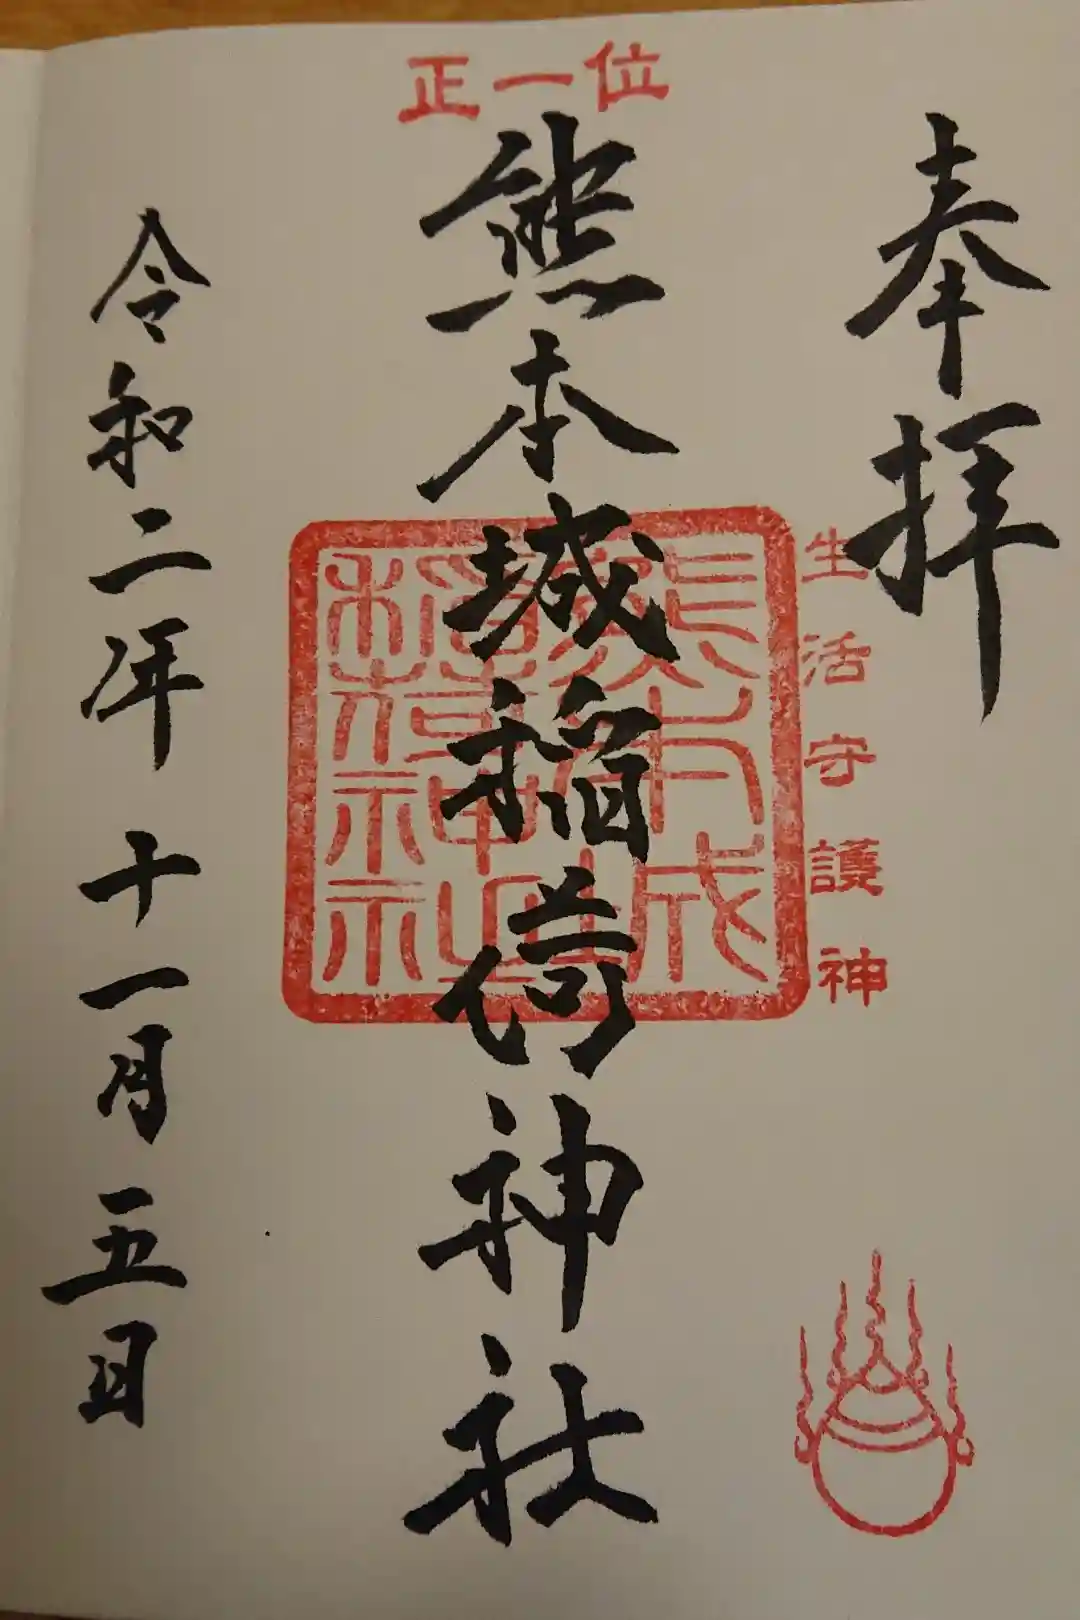 奉拝
生活守護神
正一位
熊本城稲荷神社
熊本城
稲荷神社
令和二年十一月五日